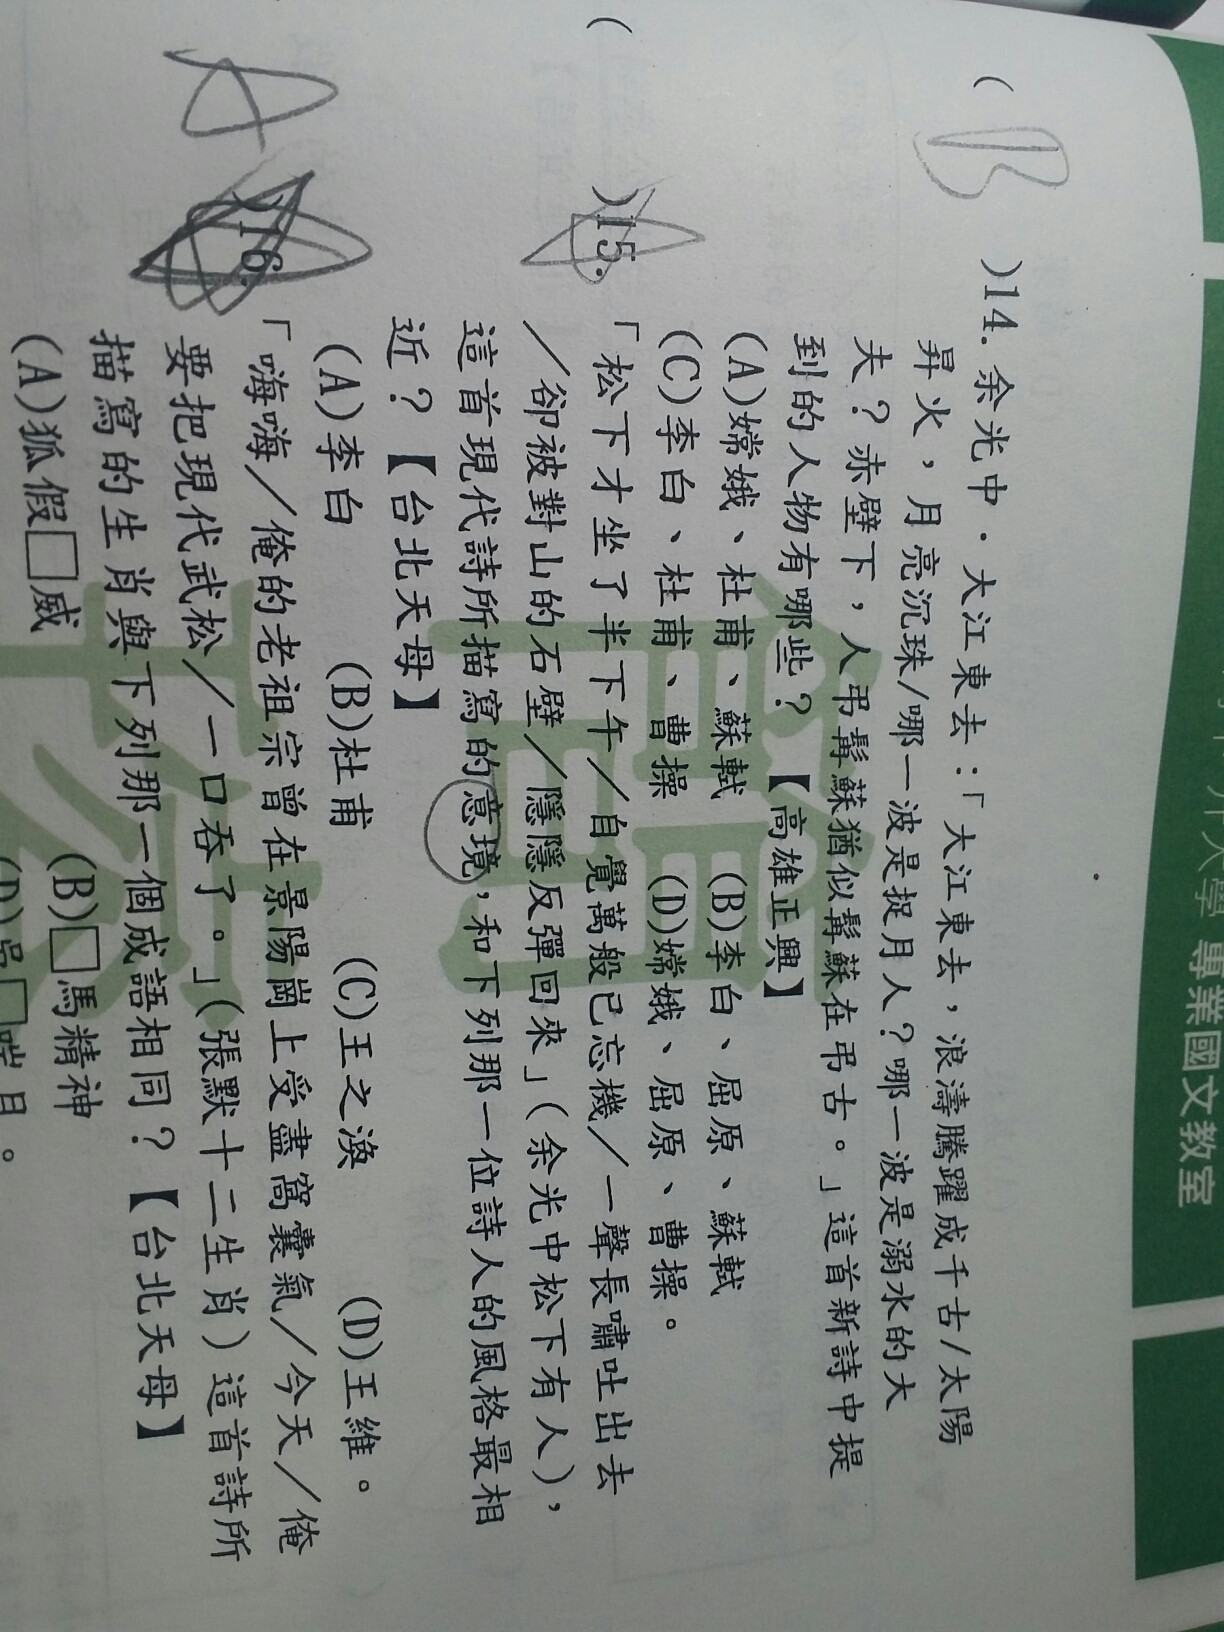 專業國文教室
B
( )14. 余光中．大江東去：「大江東去，浪濤騰躍成千古/太陽
昇火，月亮沉珠/哪一波是捉月人？哪一波是溺水的大
夫？赤壁下，人弔髯蘇猶似髯蘇在弔古。」這首新詩中提
到的人物有哪些？【高雄正興】
(A)嫦娥、杜甫、蘇軾 (B)李白、屈原、蘇軾
(C)李白、杜甫、曹操 (D)嫦娥、屈原、曹操。
( )15. 「松下才坐了半下午／自覺萬般已忘機／一聲長嘯吐出去
／卻被對山的石壁／隱隱反彈回來」(余光中松下有人)，
這首現代詩所描寫的意境，和下列那一位詩人的風格最相
近？【台北天母】
(A)李白 (B)杜甫 (C)王之渙 (D)王維。
A
)16. 「嗨嗨／俺的老祖宗曾在景陽崗上受盡窩囊氣／今天／俺
要把現代武松／一口吞了。」(張默十二生肖)這首詩所
描寫的生肖與下列那一個成語相同？【台北天母】
(A)狐假□威 (B)□馬精神